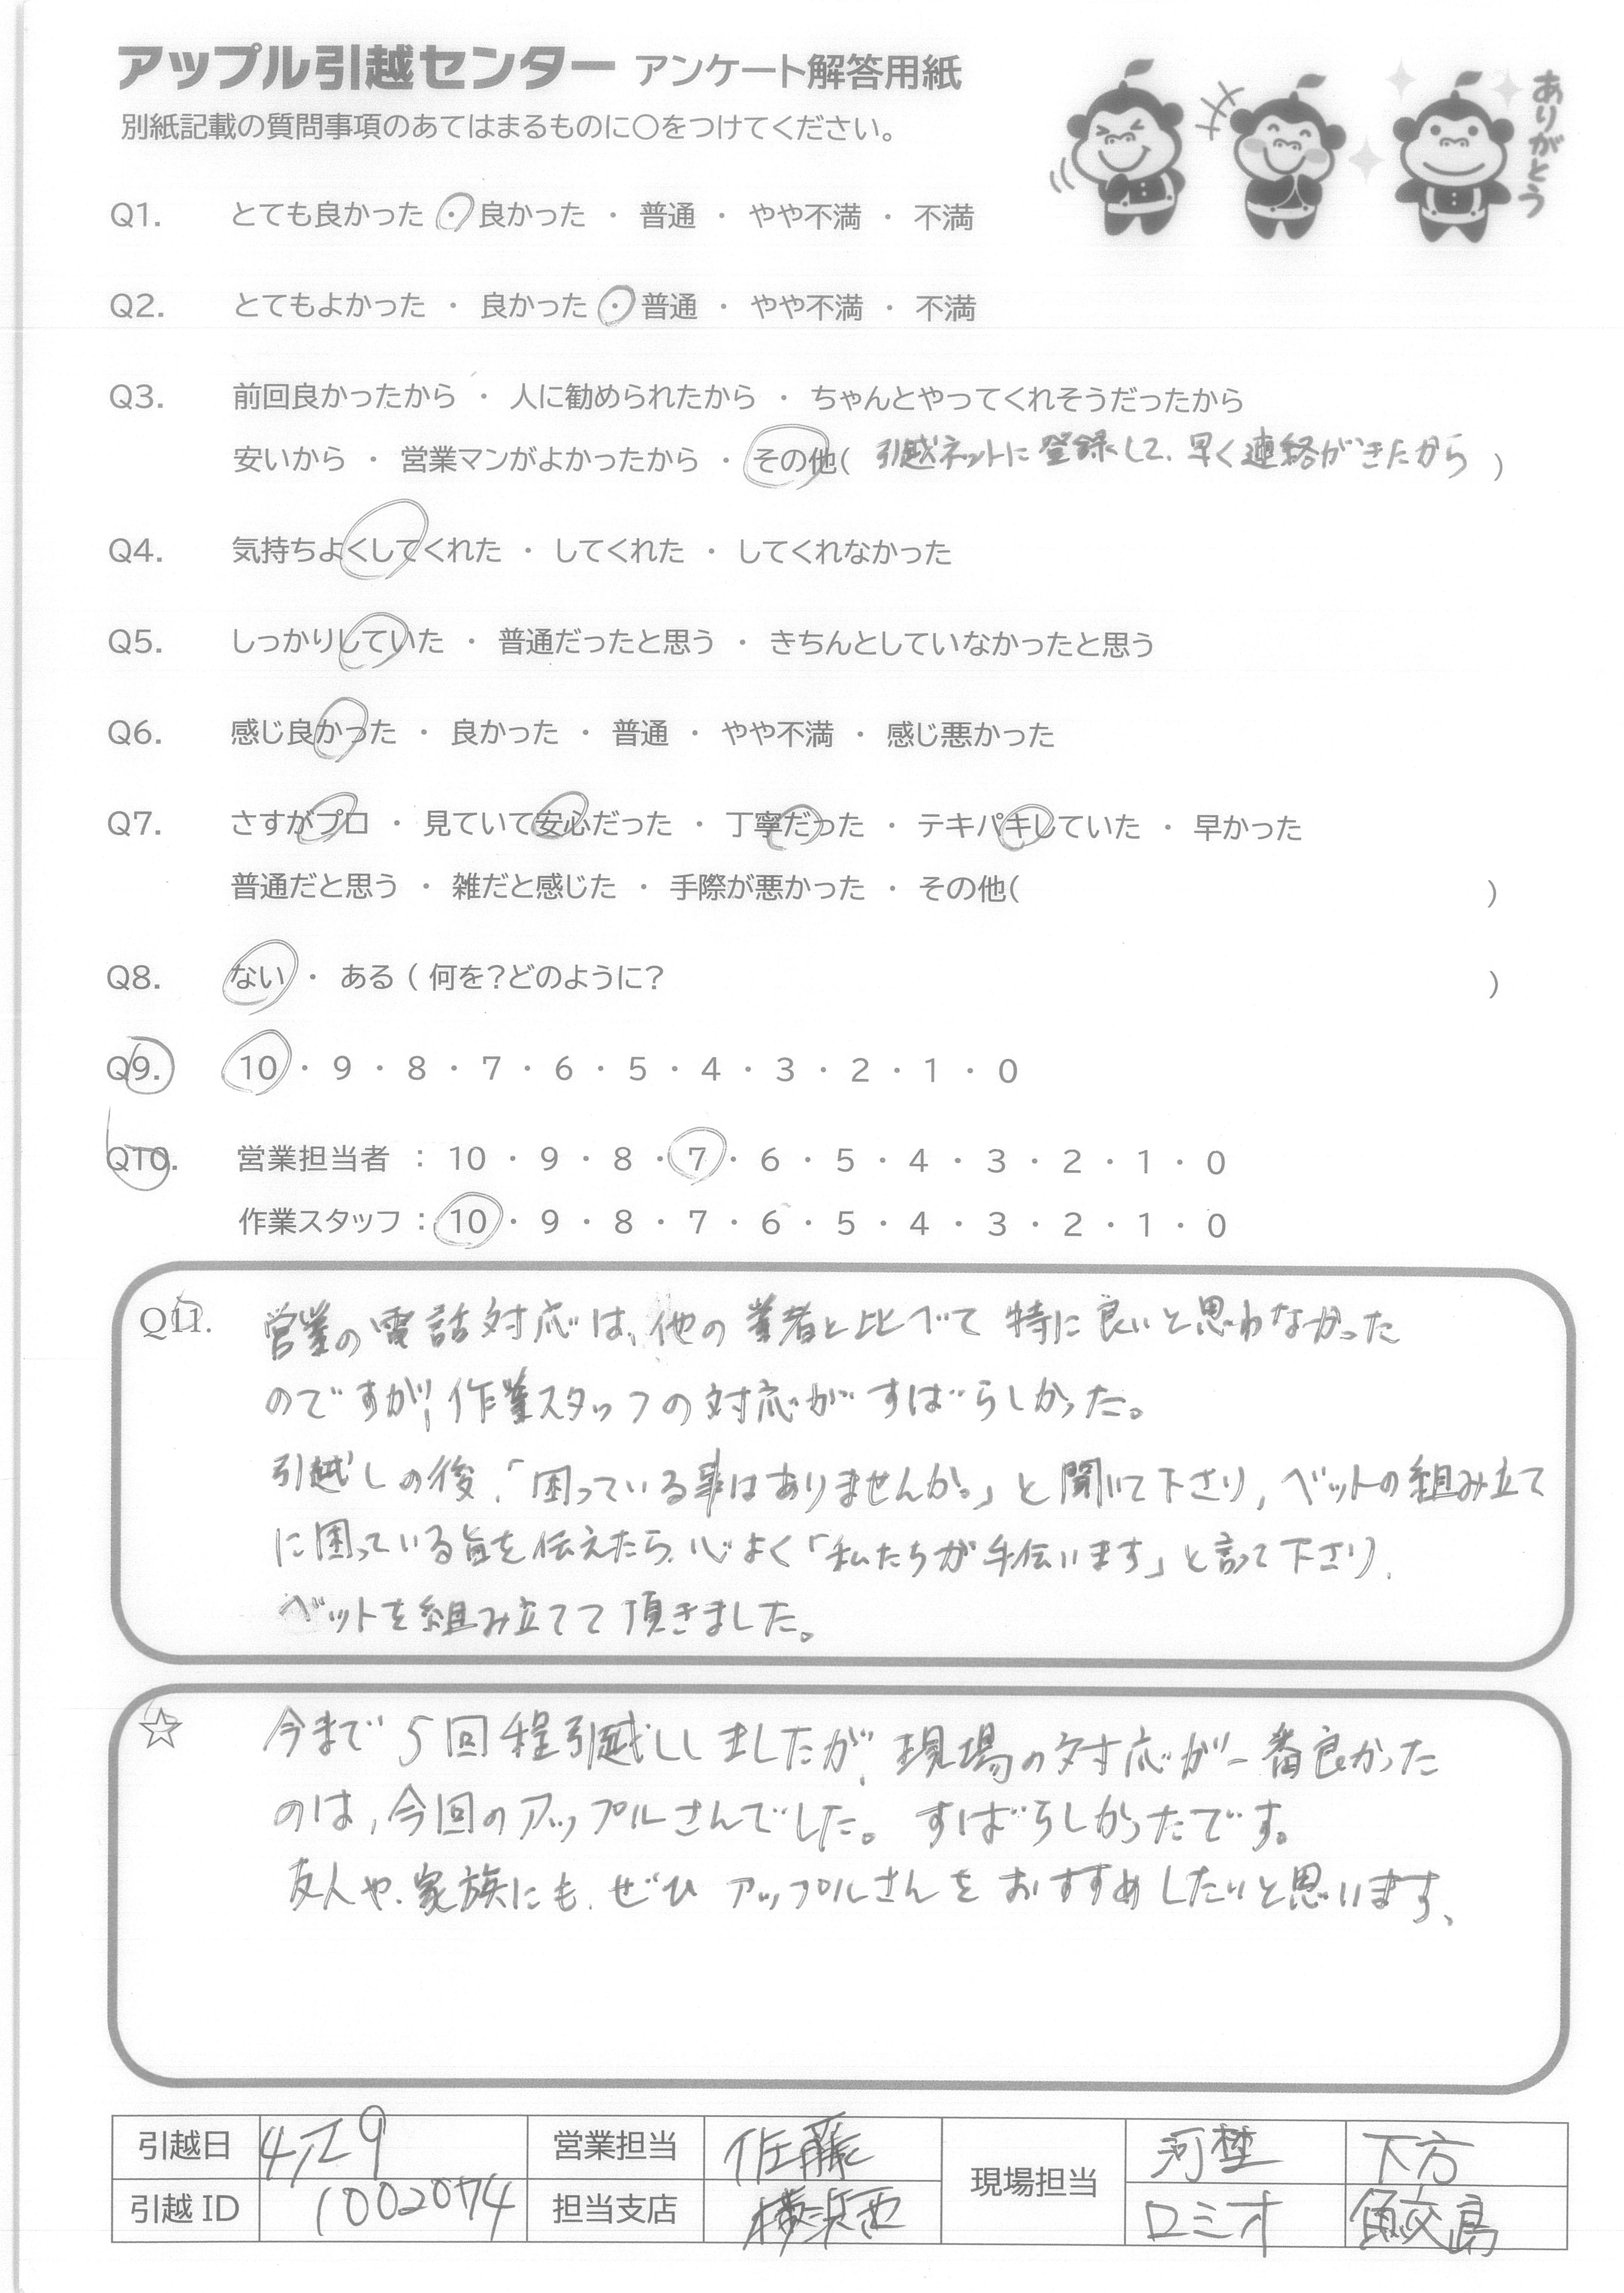 アップル引越センター アンケート解答用紙
別紙記載の質問事項のあてはまるものに○をつけてください。
ありがとう
Q1. とても良かった ・ 良かった ・ 普通 ・ やや不満 ・ 不満
Q2. とてもよかった ・ 良かった ・ 普通 ・ やや不満 ・ 不満
Q3. 前回良かったから ・ 人に勧められたから ・ ちゃんとやってくれそうだったから
安いから ・ 営業マンがよかったから ・ その他( 引越ネットに登録して、早く連絡がきたから )
Q4. 気持ちよくしてくれた ・ してくれた ・ してくれなかった
Q5. しっかりしていた ・ 普通だったと思う ・ きちんとしていなかったと思う
Q6. 感じ良かった ・ 良かった ・ 普通 ・ やや不満 ・ 感じ悪かった
Q7. さすがプロ ・ 見ていて安心だった ・ 丁寧だった ・ テキパキしていた ・ 早かった
普通だと思う ・ 雑だと感じた ・ 手際が悪かった ・ その他( )
Q8. ない ・ ある ( 何を?どのように? )
Q9. 10 ・ 9 ・ 8 ・ 7 ・ 6 ・ 5 ・ 4 ・ 3 ・ 2 ・ 1 ・ 0
Q10. 営業担当者 : 10 ・ 9 ・ 8 ・ 7 ・ 6 ・ 5 ・ 4 ・ 3 ・ 2 ・ 1 ・ 0
作業スタッフ : 10 ・ 9 ・ 8 ・ 7 ・ 6 ・ 5 ・ 4 ・ 3 ・ 2 ・ 1 ・ 0
Q11. 営業の電話対応は、他の業者と比べて特に良いと思わなかった
のですが、作業スタッフの対応がすばらしかった。
引越しの後、「困っている事はありませんか。」と聞いて下さり、ベットの組み立て
に困っている旨を伝えたら、心よく「私たちが手伝います」と言って下さり、
ベットを組み立てて頂きました。
☆ 今まで5回程引越ししましたが、現場の対応が一番良かった
のは、今回のアップルさんでした。すばらしかったです。
友人や、家族にも、ぜひアップルさんをおすすめしたいと思います、
引越日 4/29 営業担当 佐藤 現場担当 河埜 下方
引越ID 1002074 担当支店 横浜西 ロミオ 鮫島